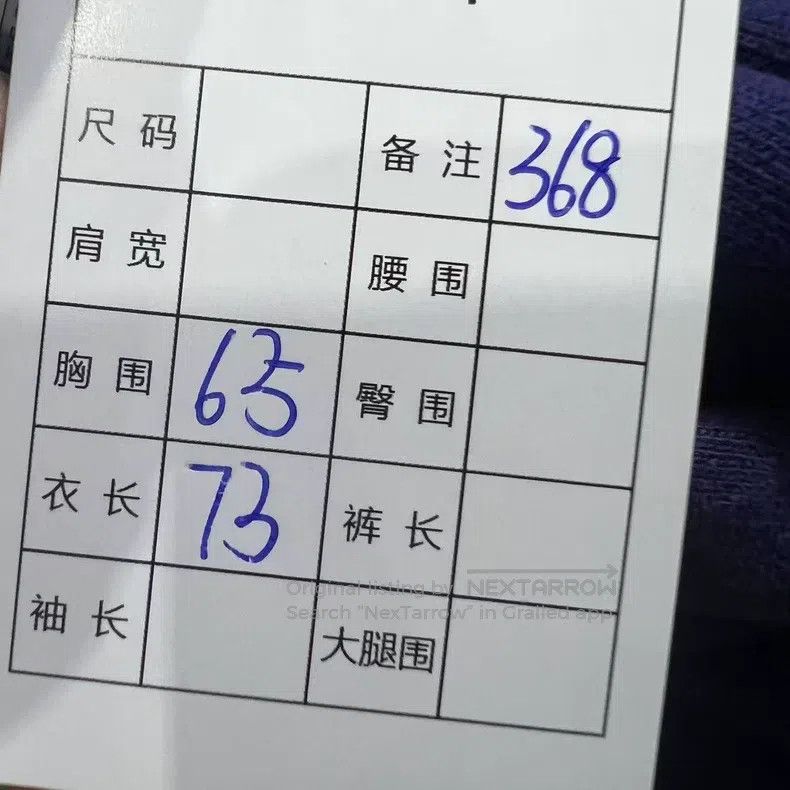 尺码 备注 368
肩宽 腰围
胸围 65 臀围
衣长 73 裤长
Original listing by NEXTARROW
Search "NexTarrow" in Grailed app
袖长 大腿围